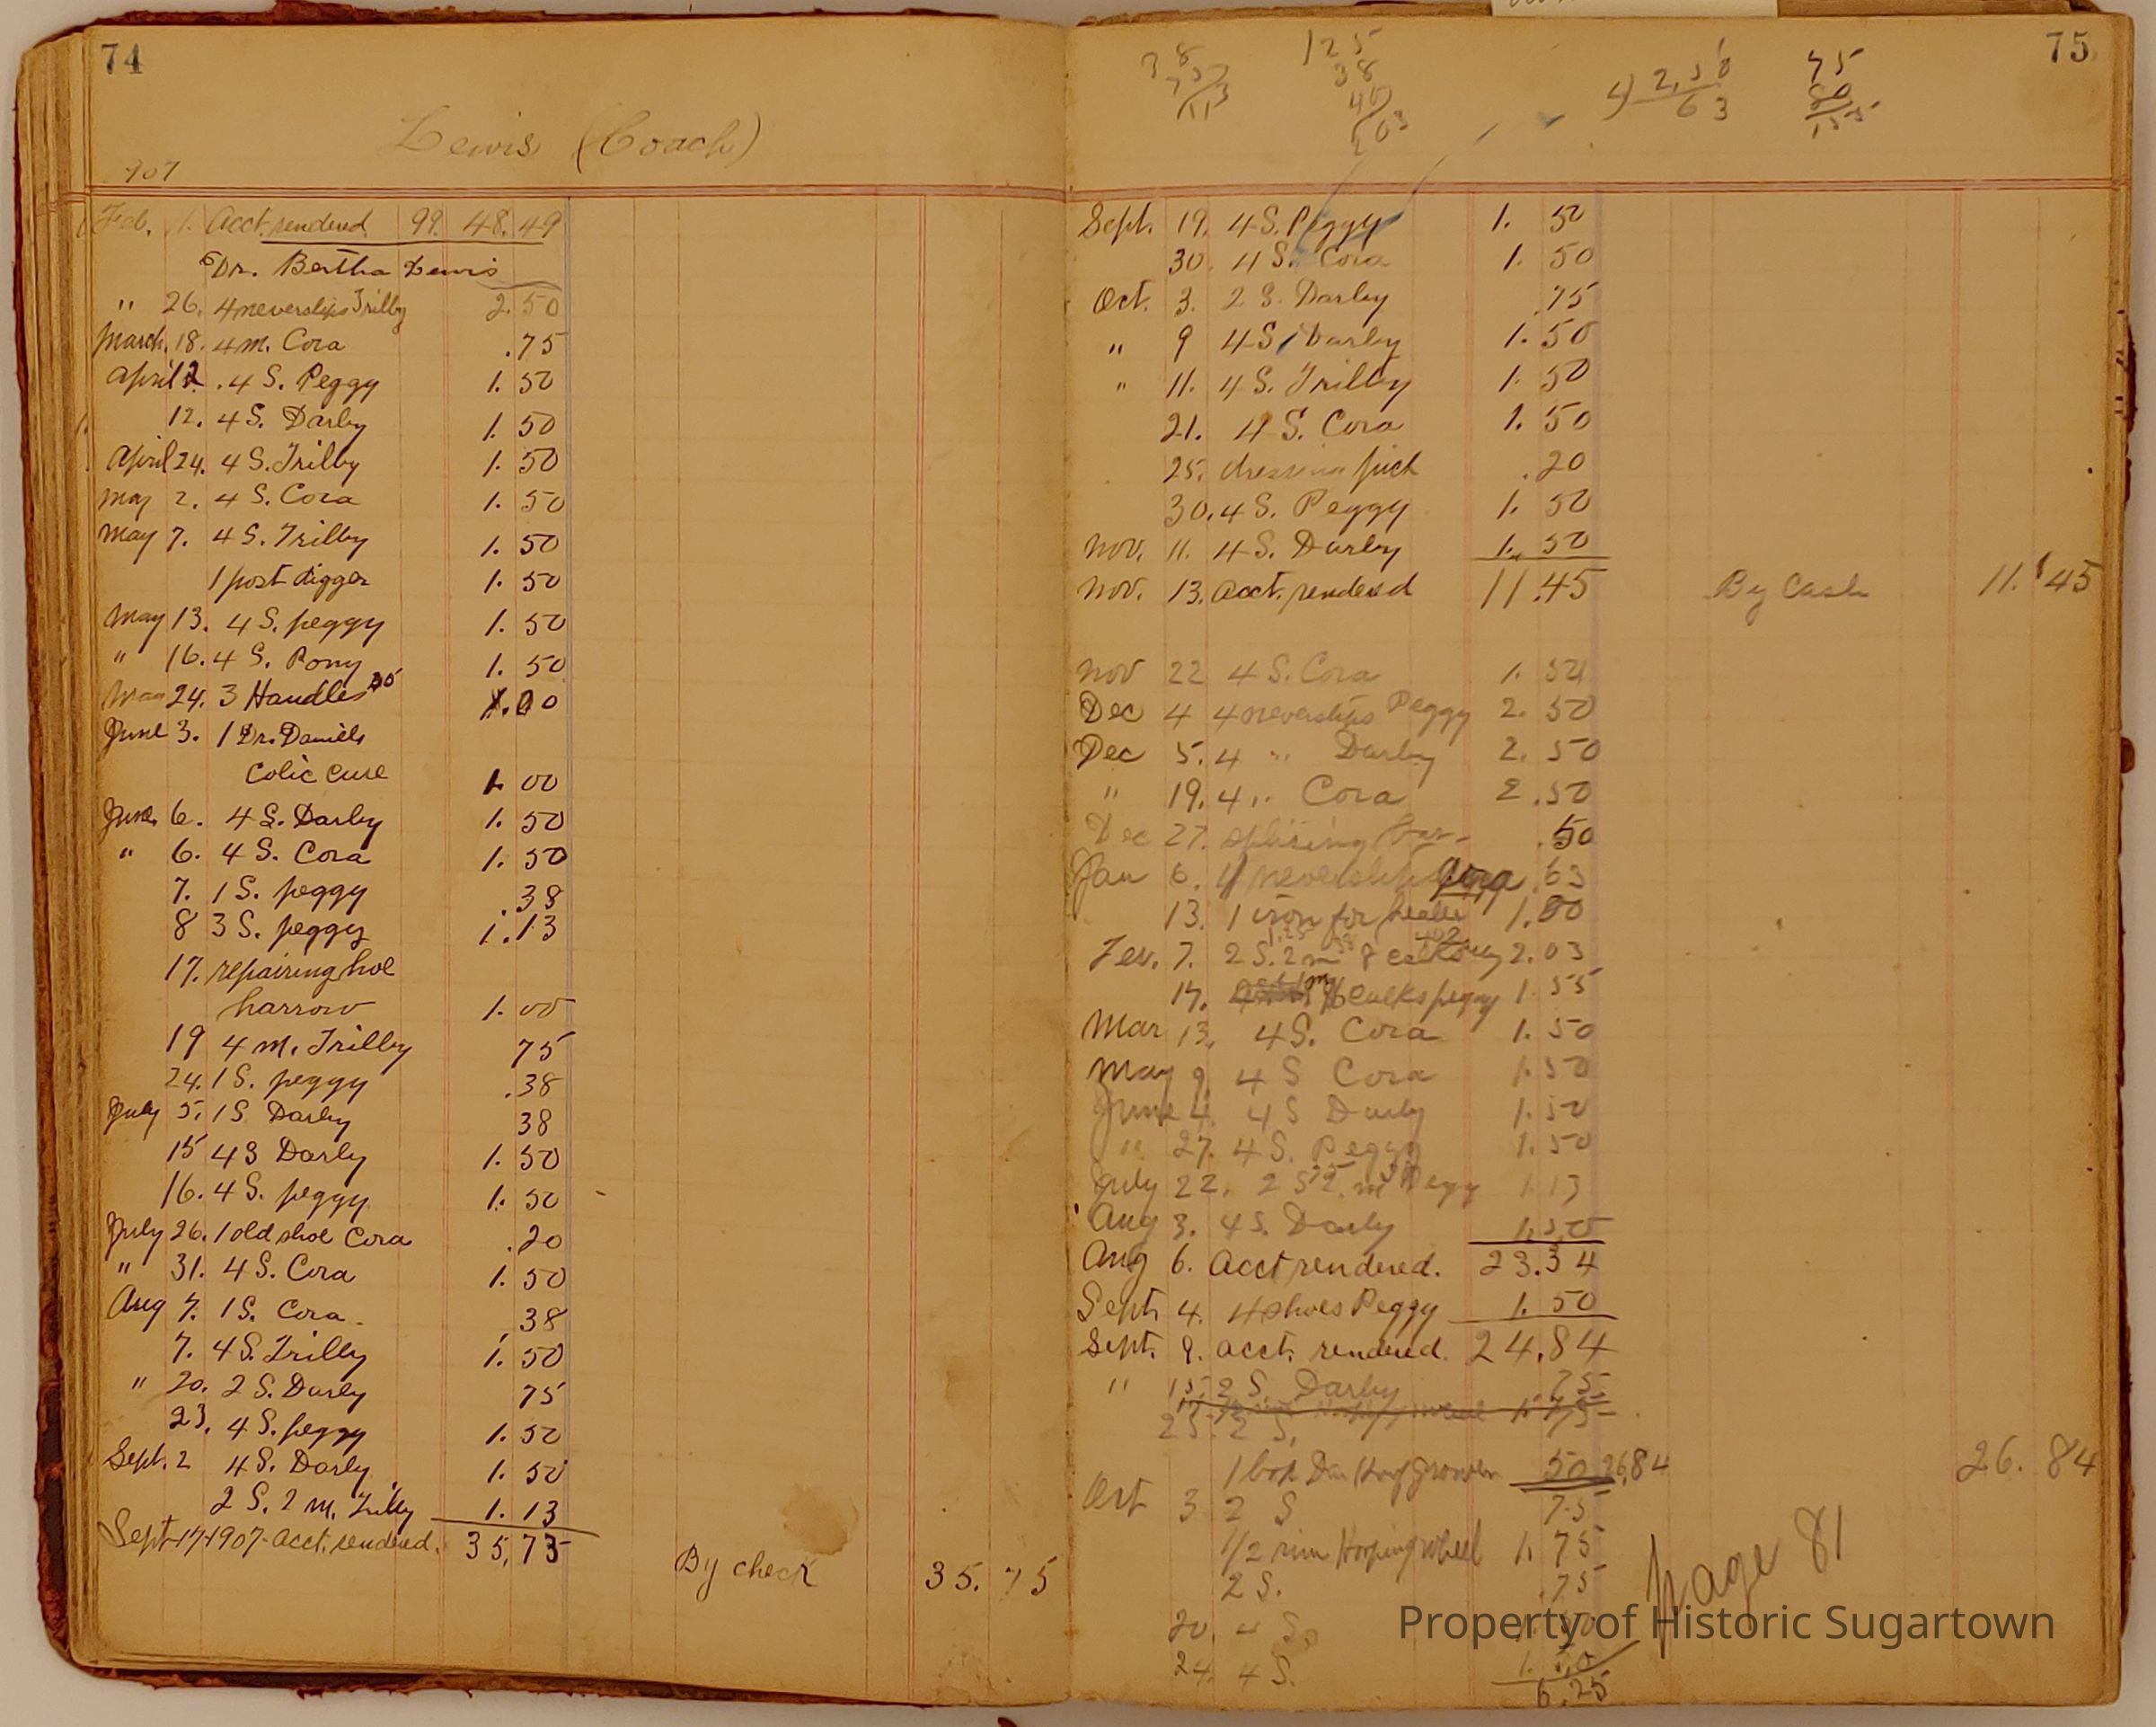 74
Lewis (Coach)
907
Feb. 1. Acct. rendered 99. 48.49
Dr. Bertha Lewis
" 26. 4 neverslips Trilby 2.50
March. 18. 4 m. Cora .75
April 2. 4 S. Peggy 1.50
12. 4 S. Darby 1.50
April 24. 4 S. Trilby 1.50
May 2. 4 S. Cora 1.50
May 7. 4 S. Trilby 1.50
1 post digger 1.50
May 13. 4 S. peggy 1.50
" 16. 4 S. Pony 1.50
May 24. 3 Handles
June 3. 1 Dr. Daniels
Colic Cure 1.00
June 6. 4 S. Darby 1.50
" 6. 4 S. Cora 1.50
7. 1 S. peggy .38
8 3 S. peggy 1.13
17. repairing hoe
harrow 1.00
19 4 m. Trilby 75
24. 1 S. peggy .38
July 5. 1 S Darby 38
15 4 S Darby 1.50
16. 4 S. peggy 1.50
July 26. 1 old shoe Cora .20
" 31. 4 S. Cora 1.50
Aug 7. 1 S. Cora .38
7. 4 S. Trilby 1.50
" 20. 2 S. Darby 75
23. 4 S. peggy 1.50
Sept. 2 4 S. Darby 1.50
2 S. 2 m. Trilby 1.13
Sept 17 1907 Acct. rendered. 35,73
By check 35.75
75
38
75
113
125
38
40
203
4) 2,50
63
75
80
155
Sept. 19. 4 S. Peggy 1.50
30. 4 S. Cora 1.50
Oct. 3. 2 S. Darby .75
" 9 4 S. Darby 1.50
" 11. 4 S. Trilby 1.50
21. 4 S. Cora 1.50
25. dressing pick .20
30. 4 S. Peggy 1.50
Nov. 11. 4 S. Darby 1.50
Nov. 13. Acct. rendered 11.45 By Cash 11.45
Nov 22 4 S. Cora
Dec 4 4 neverslips Peggy 2.50
Dec 5. 4 " Darby 2.50
" 19. 4 " Cora 2.50
Dec 27. splising bar .50
Jan 6. neverslip .63
13. 1 iron for 1.00
Fev. 7. 2 S. 2 m 8 calks 2.03
17. calks peggy 1.55
Mar 13. 4 S. Cora 1.50
May 9. 4 S Cora 1.50
June 4. 4 S Darby 1.50
" 27. 4 S. Peggy 1.50
July 22. 2 S 2 m Pegy 1.13
Aug 3. 4 S. Darby 1.50
Aug 6. Acct rendered. 23.34
Sept. 4. 4 shoes Peggy 1.50
Sept. 9. acct. rendered. 24.84
" 15. 2 S. Darby 75
25. 2 S.
1 box 50 26,84 26.84
Oct 3 2 S 75
1/2 rim Hooping wheel 1.75
2 S. .75
20. 4 S.
24. 4 S. 1.50
6.25
page 81
Property of Historic Sugartown